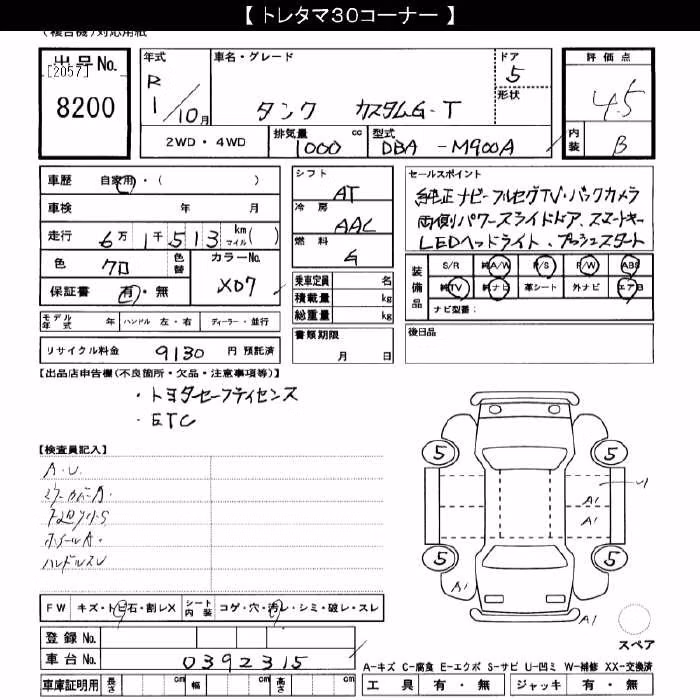 【 トレタマ３０コーナー 】
(複合機)対応用紙
出品 No.
[2057]
8200
年式
R
1/10月
車名・グレード
タンク カスタムG-T
ドア
5
形状
評価点
4.5
内装
B
2WD・4WD
排気量 cc
1000
型式
DBA - M900A
車歴 自家用・( )
車検 年 月
走行 6万 1千 513 km マイル( )
色 クロ 色替
カラーNo.
X07
保証書 有・無
シフト
AT
冷房
AAC
燃料
G
乗車定員 名
積載量 kg
総重量 kg
セールスポイント
純正ナビ・フルセグTV・バックカメラ
両側パワースライドドア、スマートキー
LEDヘッドライト、プッシュスタート
装備品
S/R 純A/W P/S P/W ABS
純TV 純ナビ 革シート 外ナビ エアB
ナビ型番:
モデル年式 年 ハンドル 左・右 ディーラー・並行
書類期限
月 日
後日品
リサイクル料金 9130 円 預託済
【出品店申告欄(不良箇所・欠品・注意事項等)】
・トヨタセーフティセンス
・ETC
【検査員記入】
A.U.
ホイールA.
ハンドルスレ
5
5
5
5
A1
A1
A1
A1
FW キズ・トビ石・割レX シート内装 コゲ・穴・汚レ・シミ・破レ・スレ
登録 No.
車台 No. 0392315
スペア
A-キズ C-腐食 E-エクボ S-サビ U-凹ミ W-補修 XX-交換済
車庫証明用 長さ cm 幅 cm 高さ cm
工具 有・無 ジャッキ 有・無